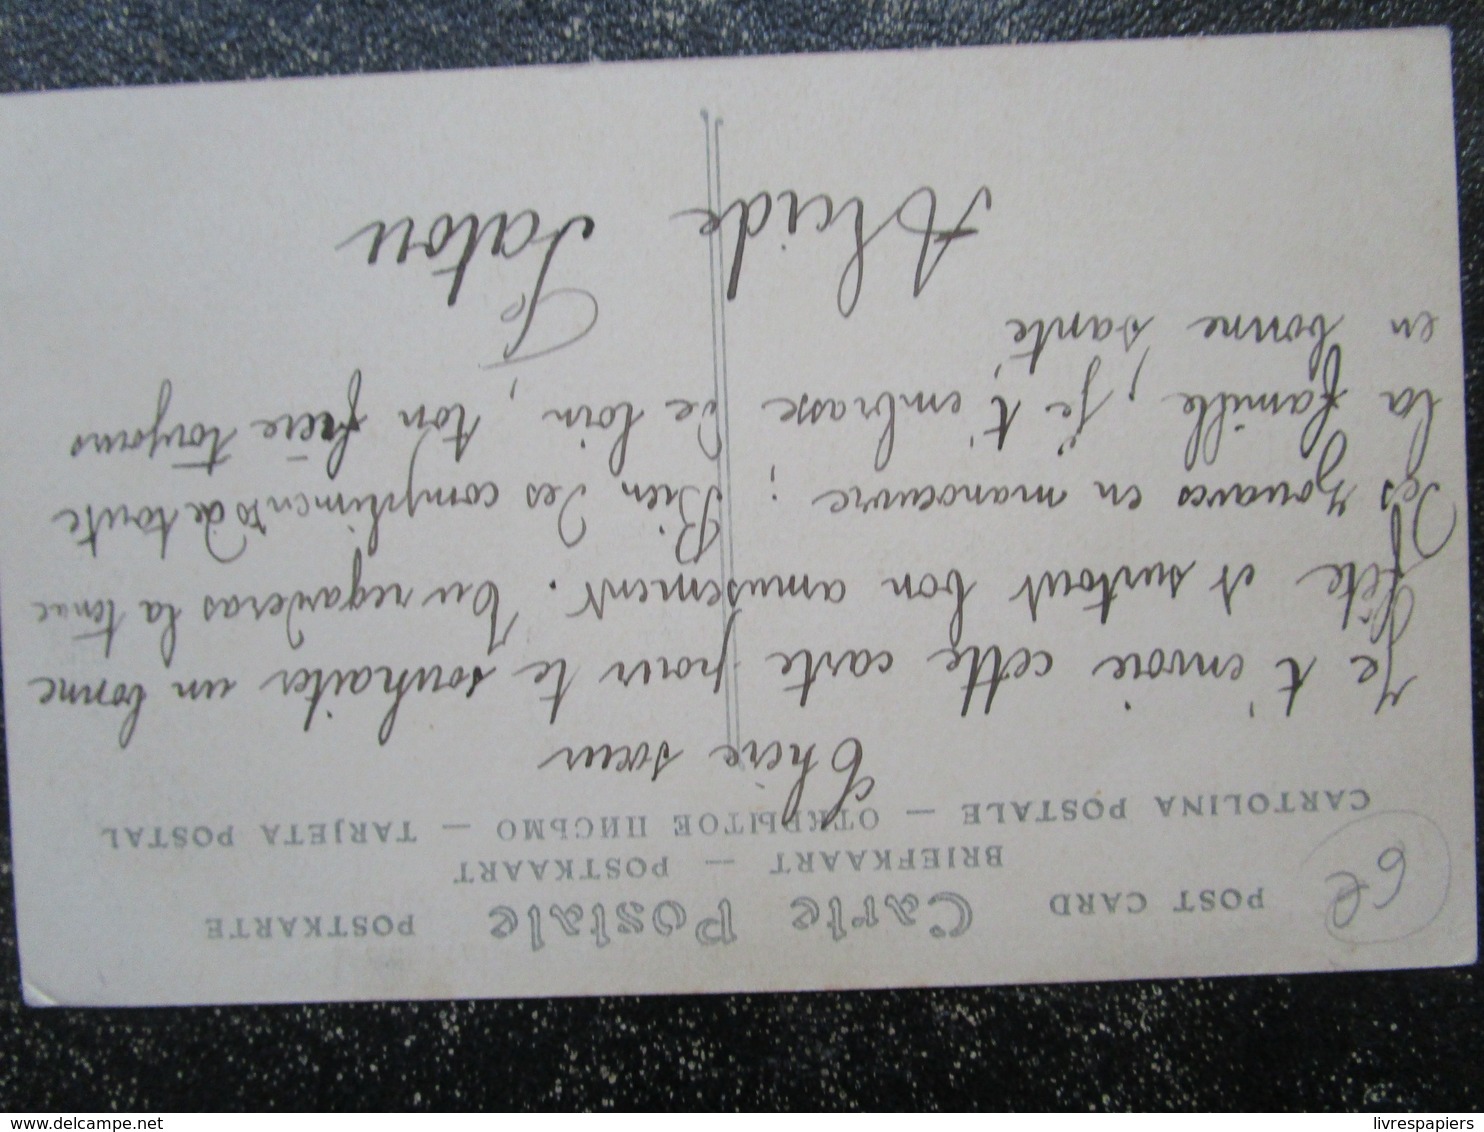 POST CARD Carte Postale POSTKARTE
6e
BRIEFKAART — POSTKAART
CARTOLINA POSTALE — ОТКРЫТОЕ ПИСЬМО — TARJETA POSTAL
Chère sœur
Je t'envoie cette carte pour te souhaiter un bonne
fête et surtout bon amusement. Tu regarderas la tenue
des zouaves en manoeuvre ; Bien des compliments à toute
la famille, je t'embrasse de loin, ton frère toujours
en bonne santé
Alcide
livrespapiers